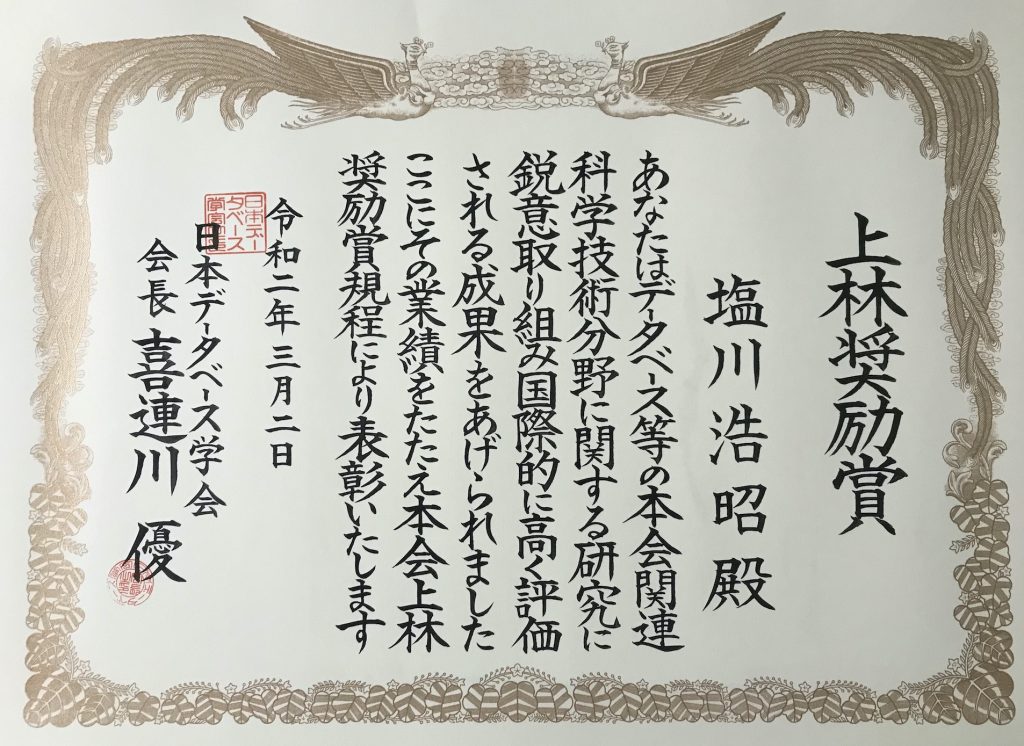 上林奨励賞
塩川浩昭殿
あなたはデータベース等の本会関連
科学技術分野に関する研究に
鋭意取り組み国際的に高く評価
される成果をあげられました
ここにその業績をたたえ本会上林
奨励賞規程により表彰いたします
令和二年三月二日
日本データベース学会
会長 喜連川 優
日本デー
タベース